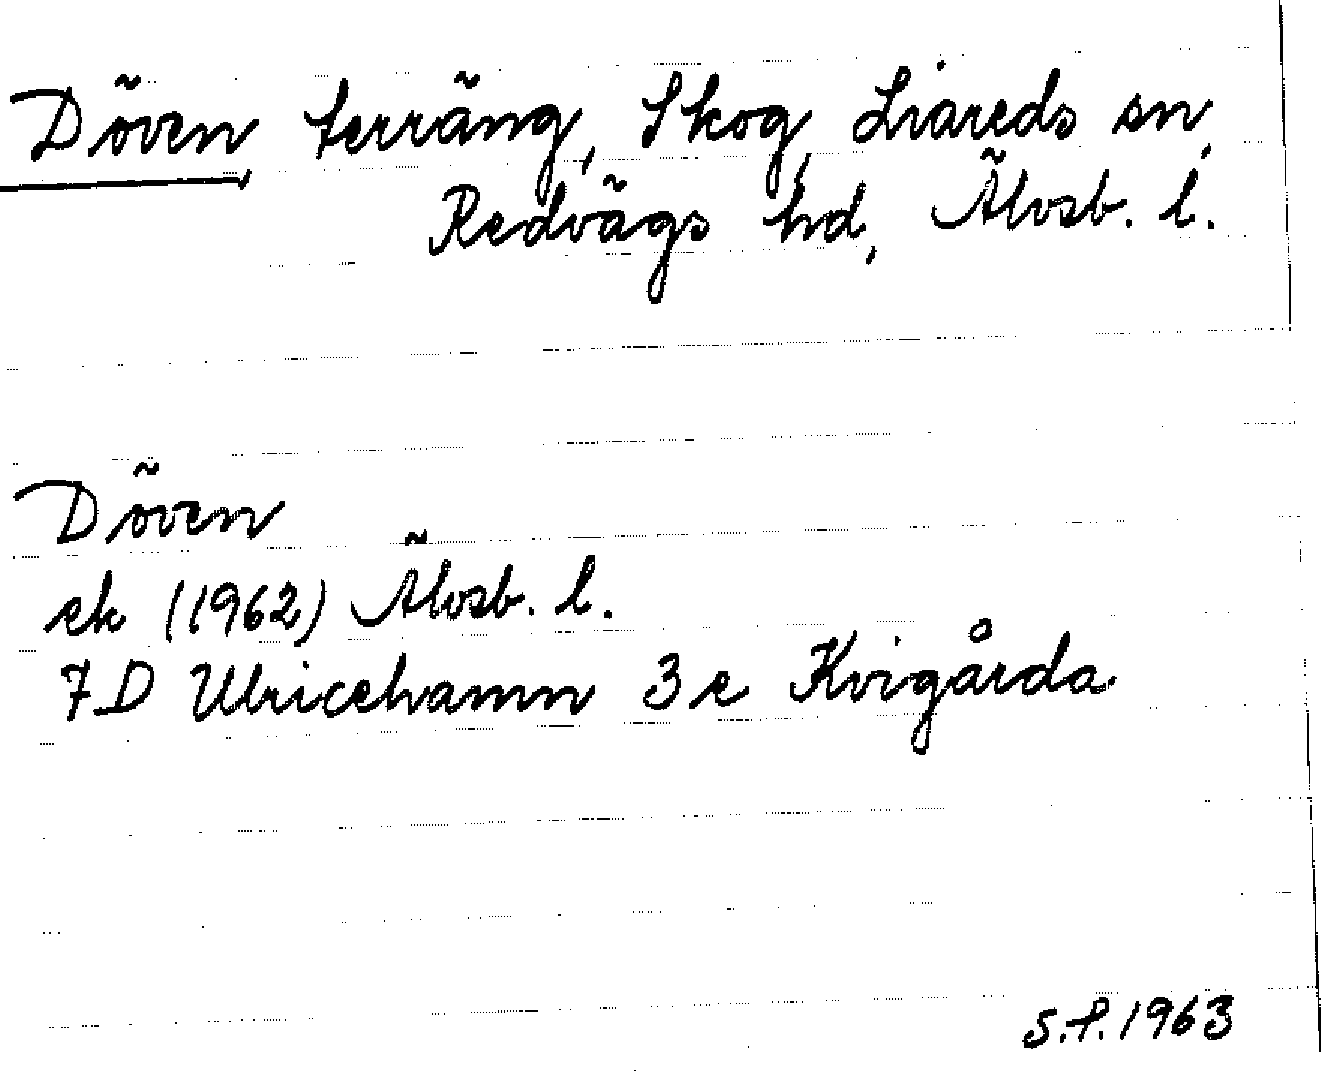 Döven, terräng, Skog, Liareds sn,
Redvägs hd, Älvsb. l.
Döven
ek (1962) Älvsb. l.
7D Ulricehamn 3e Kvigårda
S.F. 1963